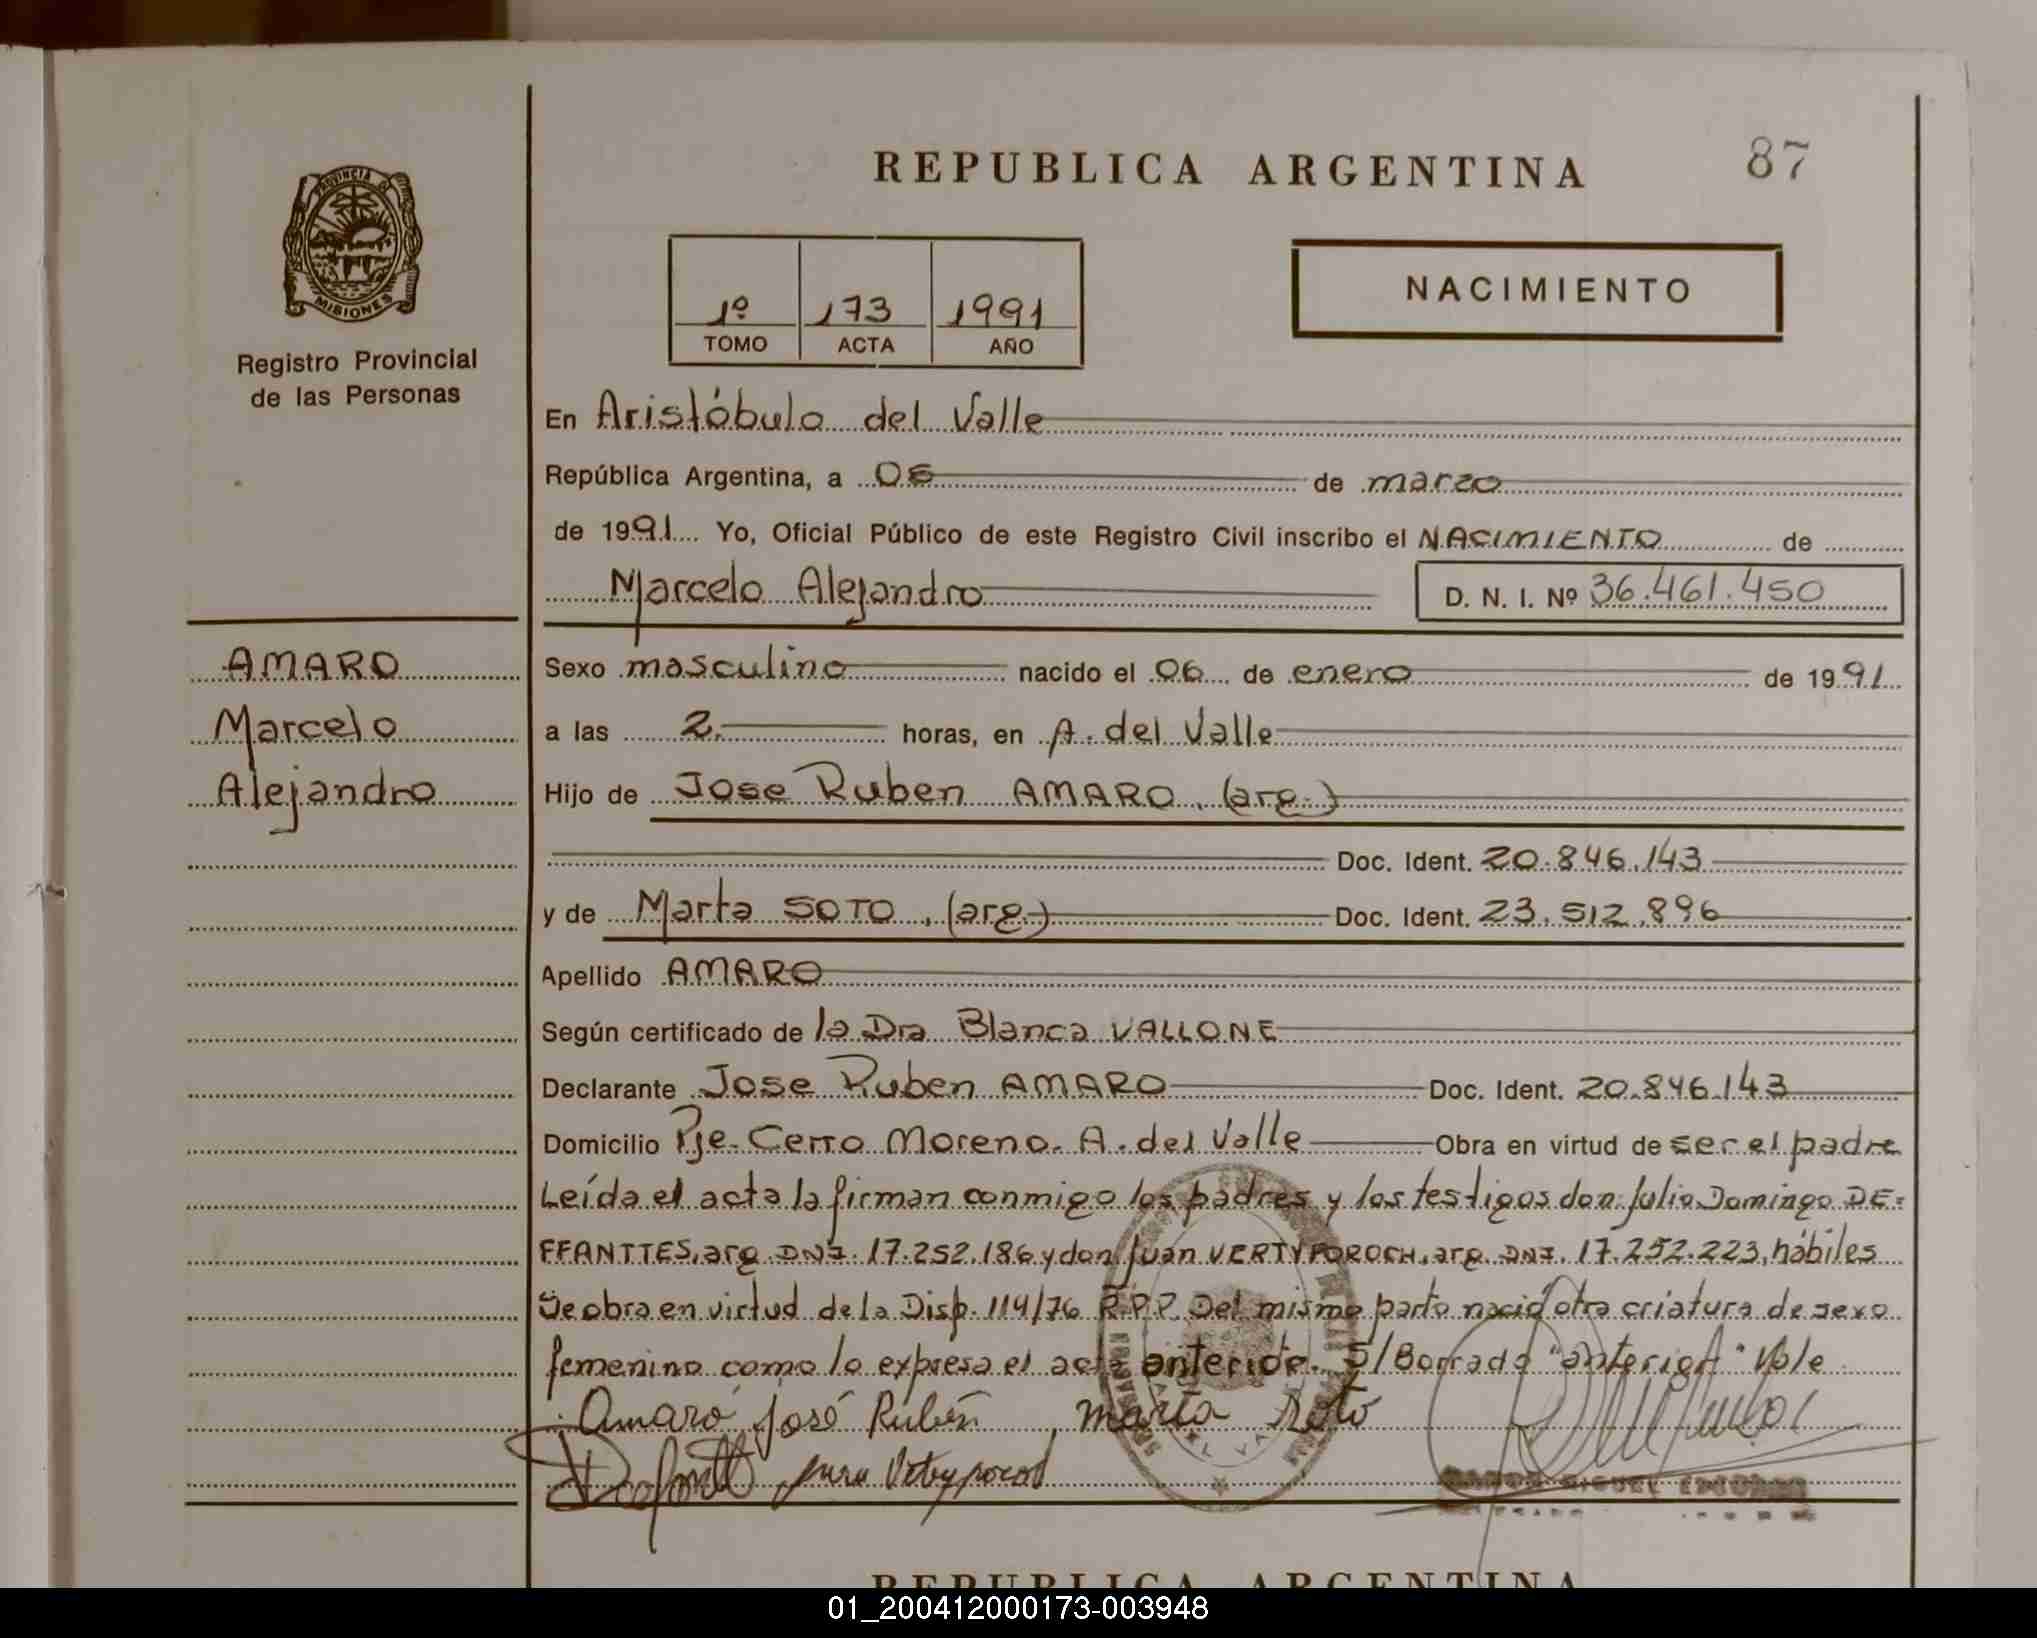 REPUBLICA ARGENTINA
87
PROVINCIA D
MISIONES
Registro Provincial
de las Personas
1º 173 1991
TOMO ACTA AÑO
NACIMIENTO
En Aristóbulo del Valle
República Argentina, a 06 de marzo
de 1991 Yo, Oficial Público de este Registro Civil inscribo el NACIMIENTO de
Marcelo Alejandro D. N. I. Nº 36.461.450
AMARO
Marcelo
Alejandro
Sexo masculino nacido el 06 de enero de 1991
a las 2. horas, en A. del Valle
Hijo de Jose Ruben AMARO, (arg.)
Doc. Ident. 20.846.143
y de Marta SOTO, (arg.) Doc. Ident. 23.512.896
Apellido AMARO
Según certificado de la Dra Blanca VALLONE
Declarante Jose Ruben AMARO Doc. Ident. 20.846.143
Domicilio Pje. Cerro Moreno. A. del Valle Obra en virtud de ser el padre
Leída el acta la firman conmigo los padres y los testigos don Julio Domingo DE=
FFANTTES, arg. DNI. 17.252.186 y don Juan VERTYPOROCH, arg. DNI. 17.252.223, hábiles
Se obra en virtud de la Disp. 114/76 R.P.P. Del mismo parto nació otra criatura de sexo
femenino como lo expresa el acta anterior. S/Borrado "anterior" Vale
Amaro José Rubén marta Soto
REPUBLICA ARGENTINA
01_200412000173-003948